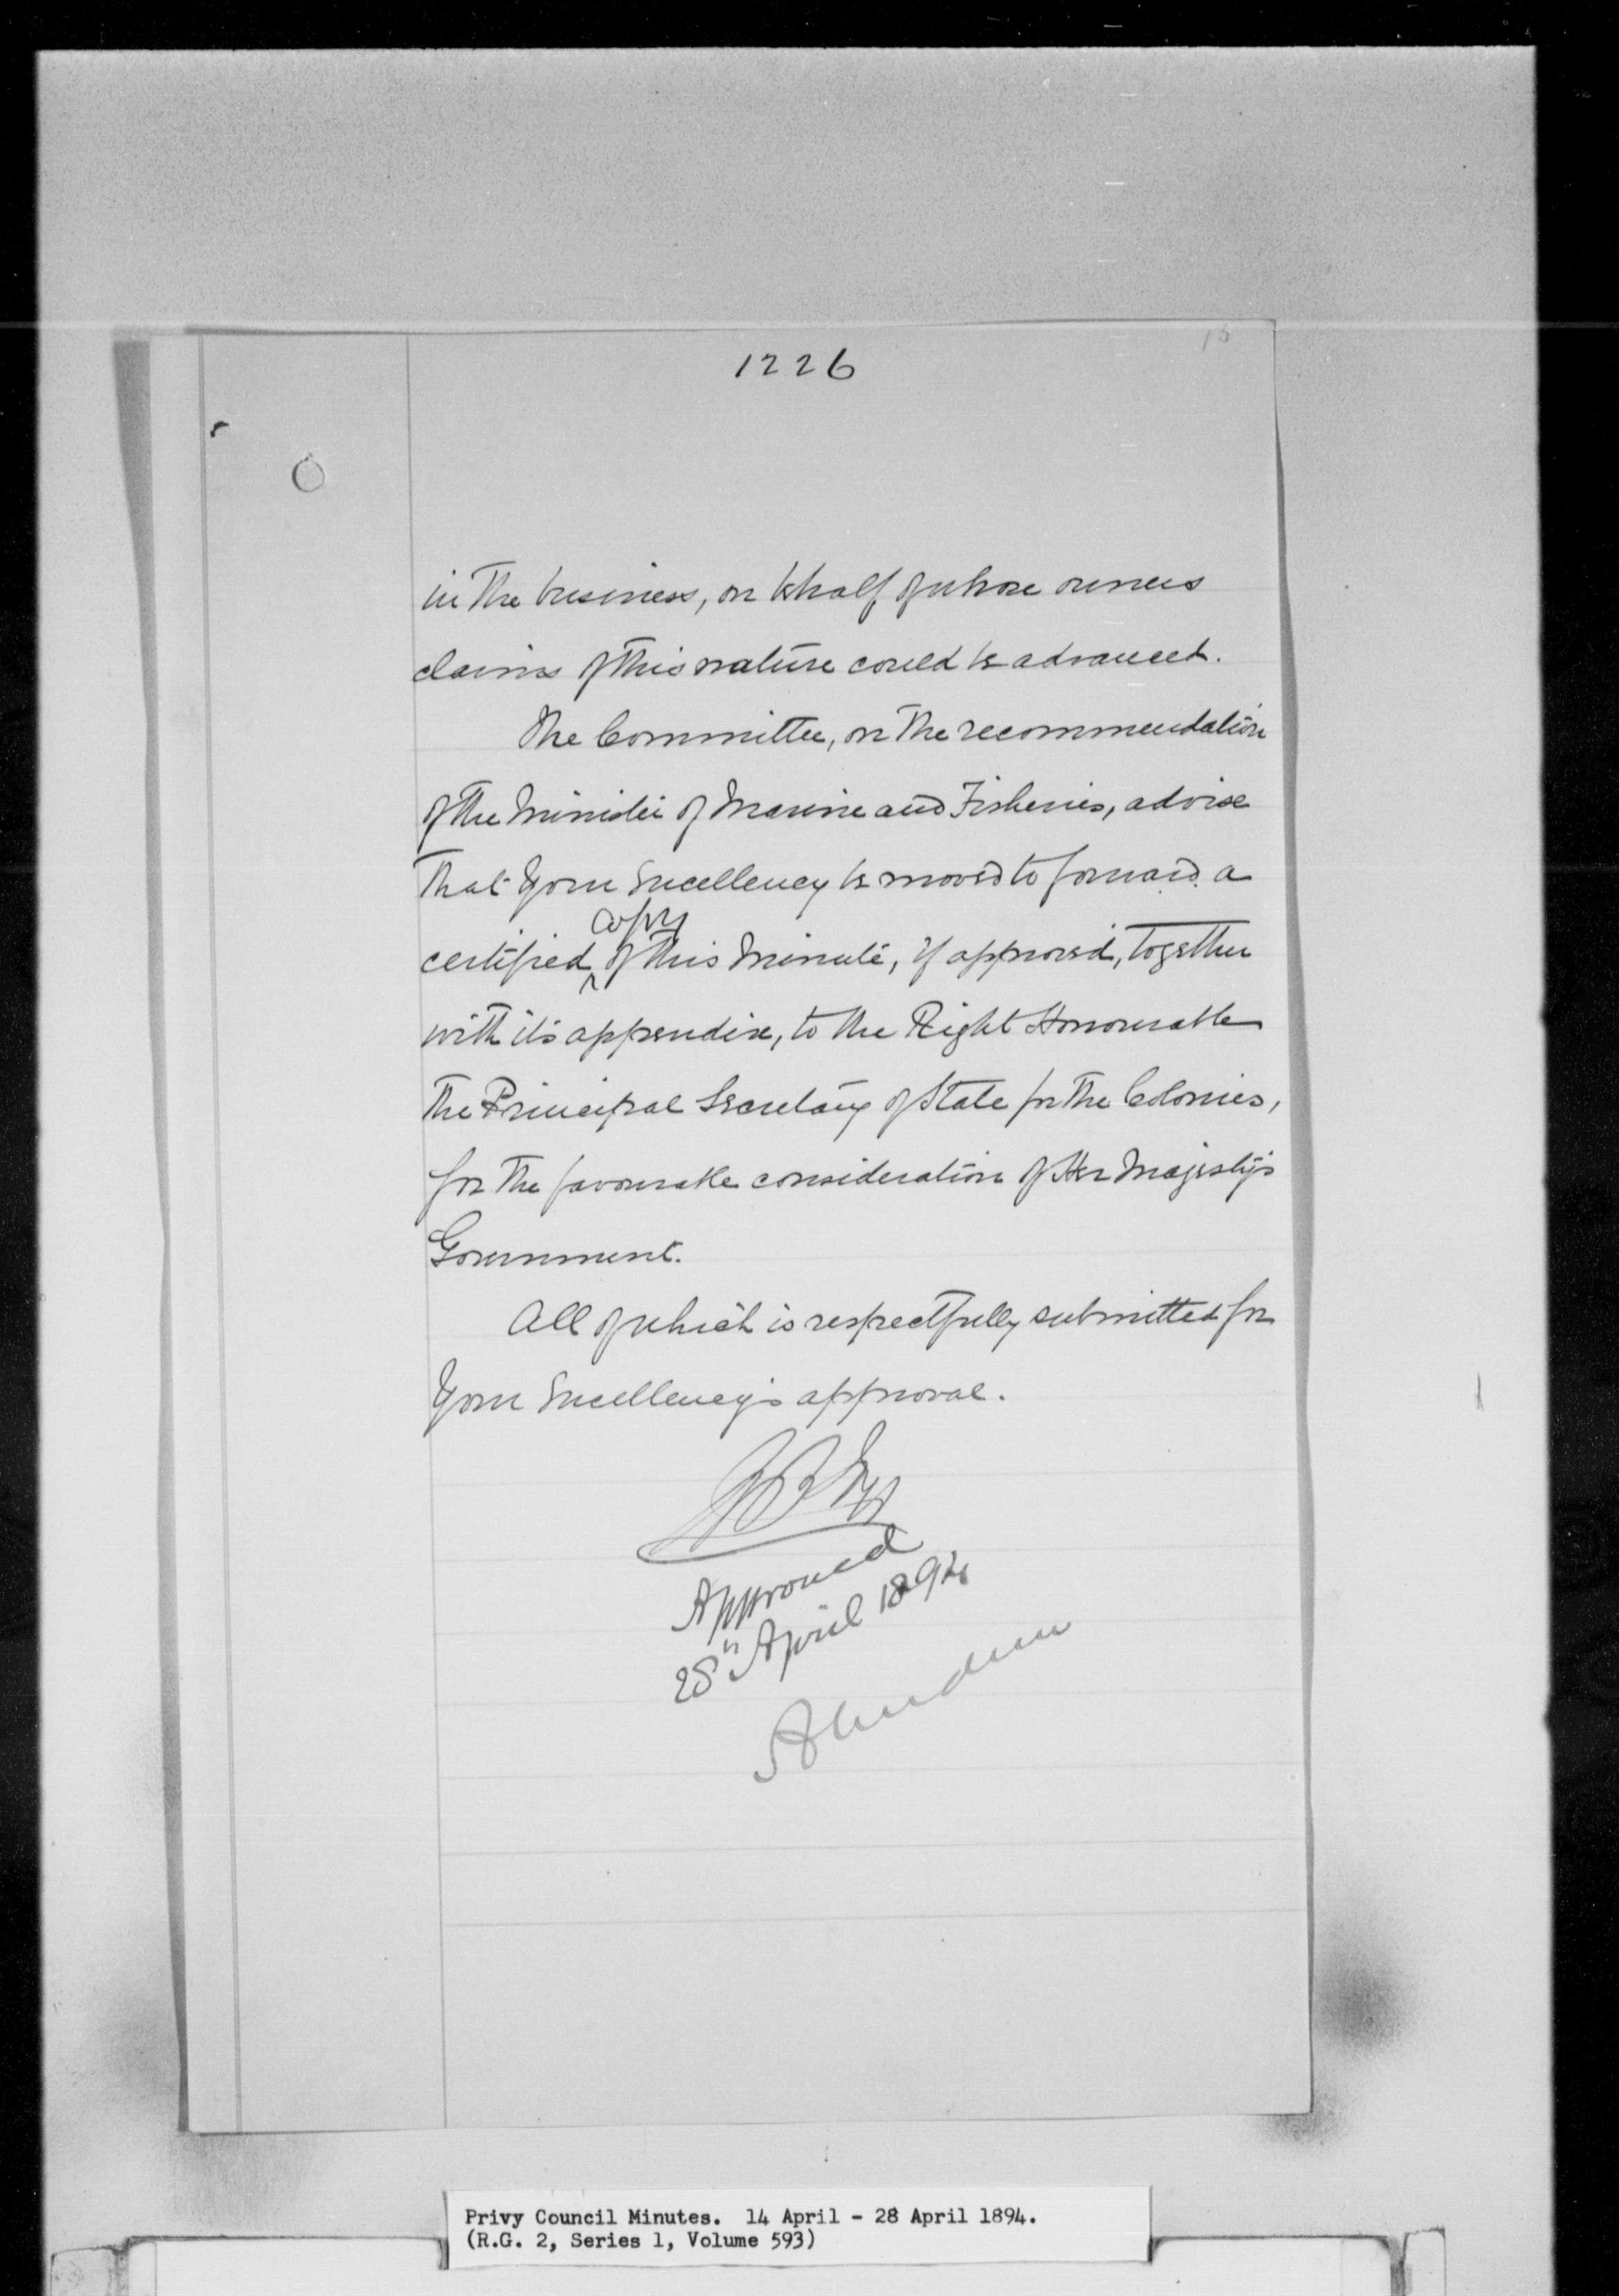 15
1226
in the business, on behalf of whose owners
claims of this nature could be advanced.
The Committee, on the recommendation
of the Minister of Marine and Fisheries, advise
that Your Excellency be moved to forward a
copy
certified ^ of this Minute, if approved, together
with its appendix, to the Right Honourable
the Principal Secretary of State for the Colonies,
for the favourable consideration of Her Majesty's
Government.
All of which is respectfully submitted for
Your Excellency's approval.
Approved
28th April 1894
Aberdeen
Privy Council Minutes. 14 April - 28 April 1894.
(R.G. 2, Series 1, Volume 593)